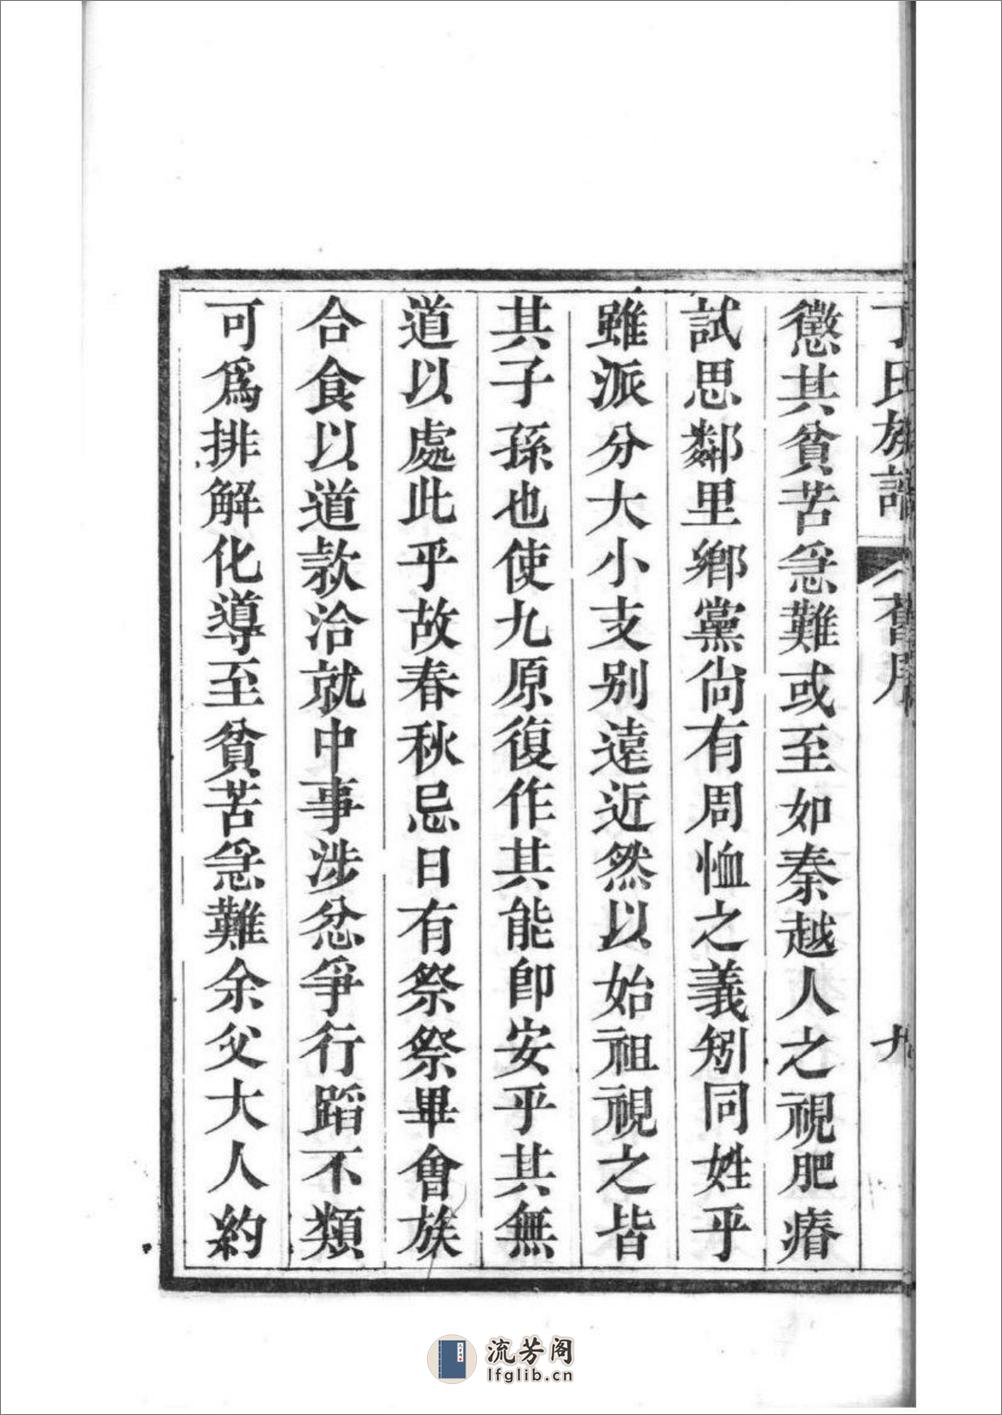 丁氏族譜
舊序
九
懲其貧苦急難或至如秦越人之視肥瘠
試思鄰里鄉黨尚有周恤之義矧同姓乎
雖派分大小支别遠近然以始祖視之皆
其子孫也使九原復作其能卽安乎其無
道以處此乎故春秋忌日有祭祭畢會族
合食以道款洽就中事涉忿爭行蹈不類
可爲排解化導至貧苦急難余父大人約
流芳阁
lfglib.cn